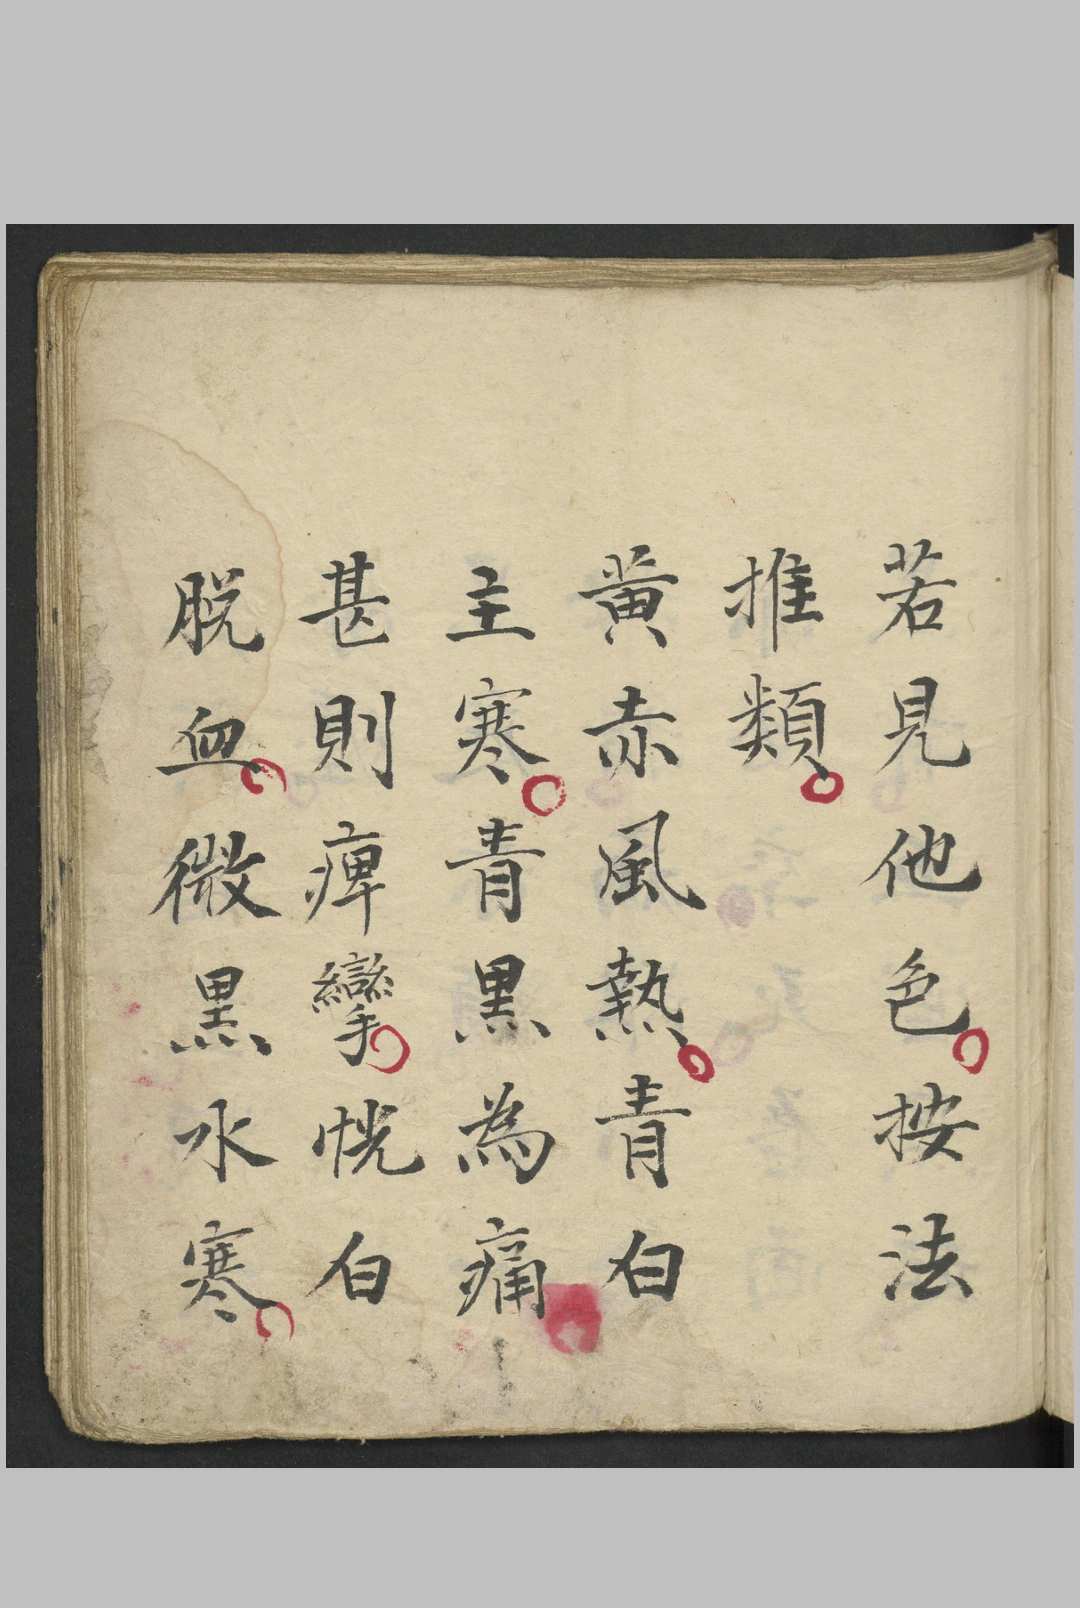 若見他色按法
推類
黄赤風熱青白
主寒青黑為痛
甚則痺攣恍白
脫血微黑水寒